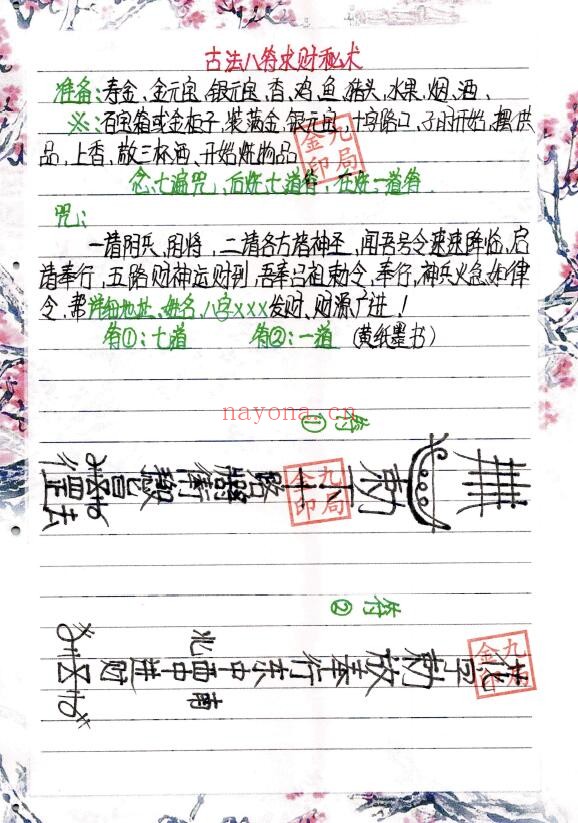 古法八符求财秘术
准备:寿金、金元宝、银元宝、香、鸡、鱼、猪头、水果、烟、酒、
※:百宝箱或金柜子,装满金、银元宝,十字路口,子时开始,摆供
品,上香、敬三杯酒、开始烧物品
念七遍咒,后烧七道符,在烧一道符.
咒:
一请阴兵、阴将,二请各方诸神圣,闻吾号令速速降临,启
请奉行,五路财神运财到,吾奉吕祖敕令,奉行,神兵火急如律
令,帮详细地址、姓名、八字xxx发财、财源广进!
符①:七道 符②:一道 (黄纸墨书)
nayona.cn
符①
九局金印
符②
敕 奉行 东中西中进财
北
南
九局金印